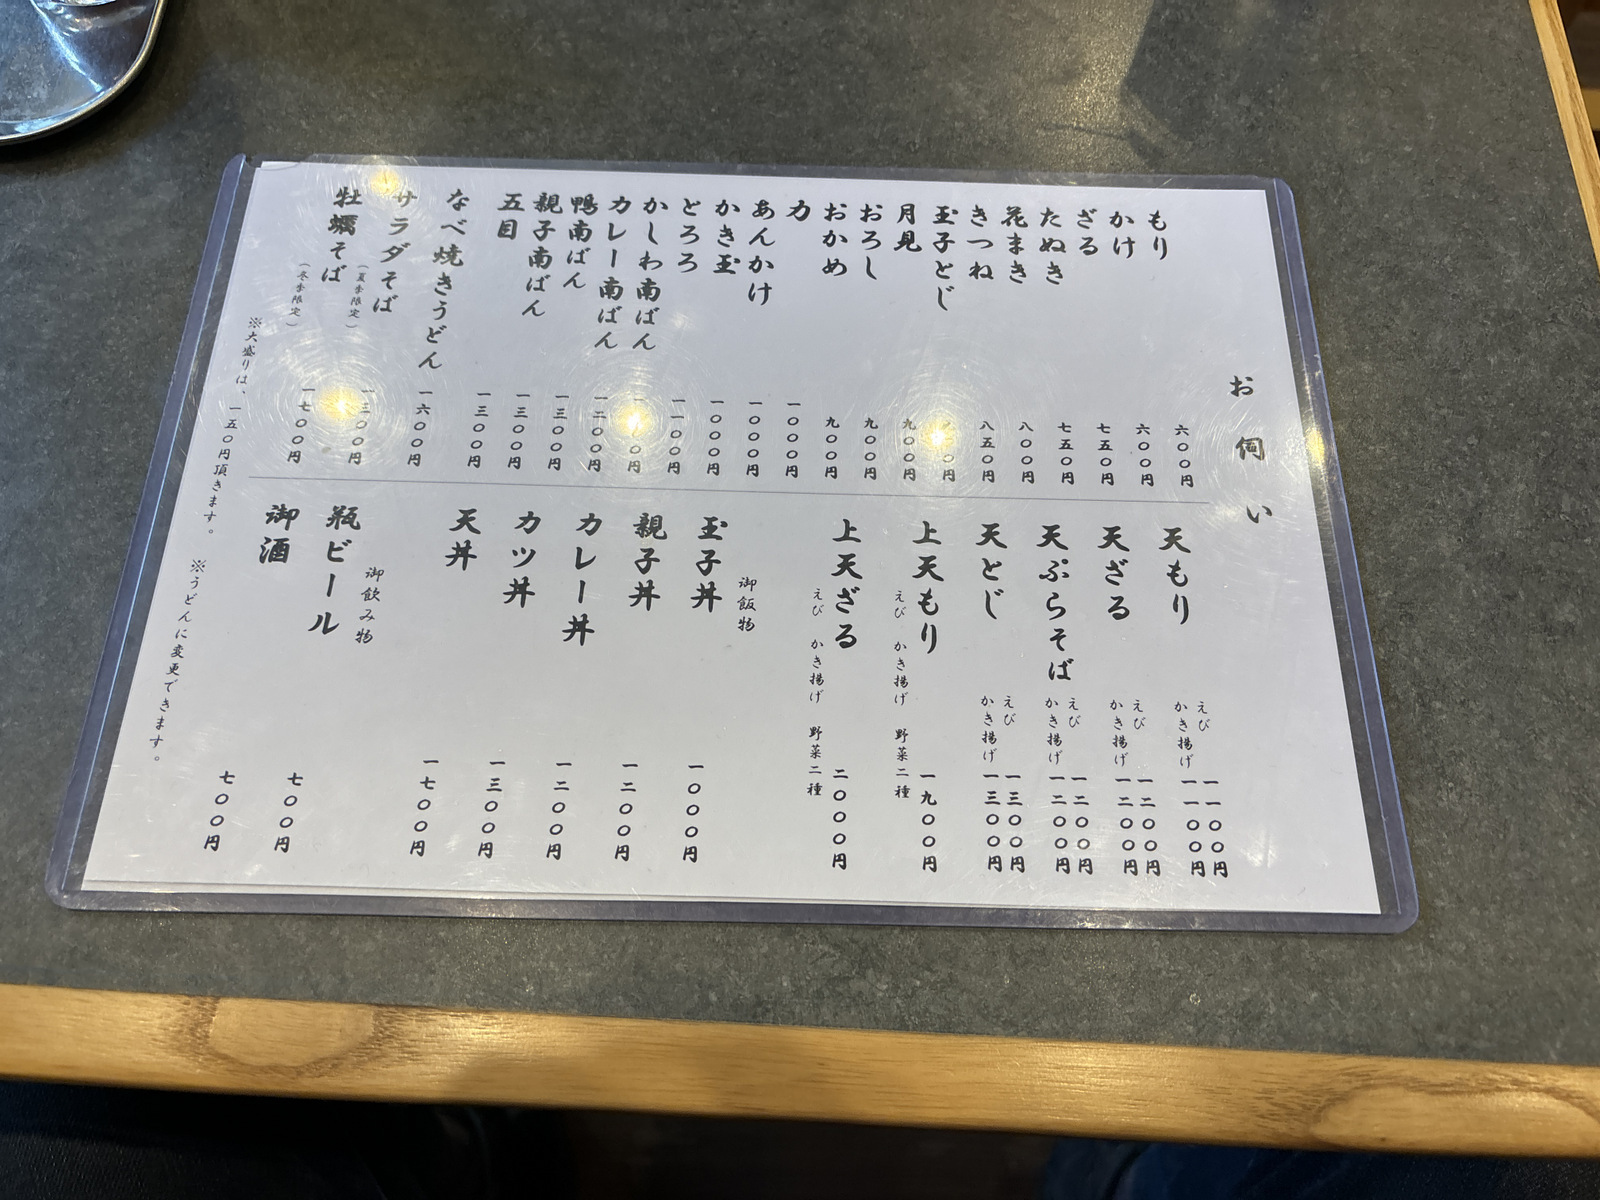 お伺い
もり 六〇〇円
かけ 六〇〇円
ざる 七五〇円
たぬき 七五〇円
花まき 八〇〇円
きつね 八五〇円
玉子とじ
月見 九〇〇円
おろし 九〇〇円
おかめ 九〇〇円
力 一〇〇〇円
あんかけ 一〇〇〇円
かき玉 一〇〇〇円
とろろ 一一〇〇円
かしわ南ばん
カレー南ばん 一二〇〇円
鴨南ばん 一三〇〇円
親子南ばん 一三〇〇円
五目 一三〇〇円
なべ焼きうどん 一六〇〇円
サラダそば（夏季限定） 一三〇〇円
牡蠣そば（冬季限定） 一七〇〇円
※大盛りは、一五〇円頂きます。 ※うどんに変更できます。
天もり えび 一一〇〇円
かき揚げ 一一〇〇円
天ざる えび 一二〇〇円
かき揚げ 一二〇〇円
天ぷらそば えび 一二〇〇円
かき揚げ 一二〇〇円
天とじ えび 一三〇〇円
かき揚げ 一三〇〇円
上天もり 一九〇〇円
えび かき揚げ 野菜二種
上天ざる 二〇〇〇円
えび かき揚げ 野菜二種
御飯物
玉子丼 一〇〇〇円
親子丼 一二〇〇円
カレー丼 一二〇〇円
カツ丼 一三〇〇円
天丼 一七〇〇円
御飲み物
瓶ビール 七〇〇円
御酒 七〇〇円